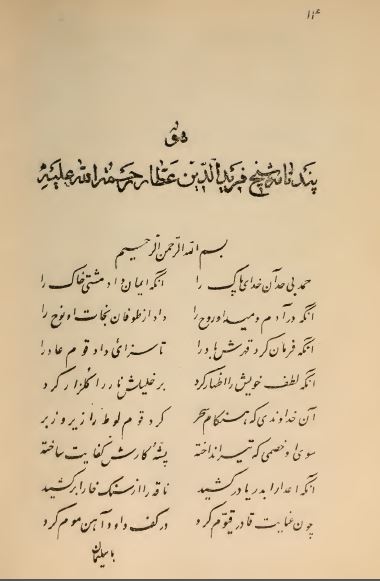 ۱۱۴
پندنامه شیخ فریدالدین عطار رحمة الله علیه
بسم الله الرحمن الرحیم
حمد بی حد آن خدای پاک را انکه ایمان داد مشتی خاک را
انکه در آدم دمید او روح را داد از طوفان نجات او نوح را
انکه فرمان کرد قهرش باد را تا سزائی داد قوم عاد را
انکه لطف خویش را اظهار کرد بر خلیلش نار را گلزار کرد
آن خداوندی که هنگام سحر کرد قوم لوط را زیر و زبر
سوی او خصمی که تیر انداخته پشهٔ کارش کفایت ساخته
آنکه اعدا را بدریا در کشید ناقه را از سنک خارا بر کشید
چون عنایت قادر قیوم کرد در کف داود آهن موم کرد
با سلیمان